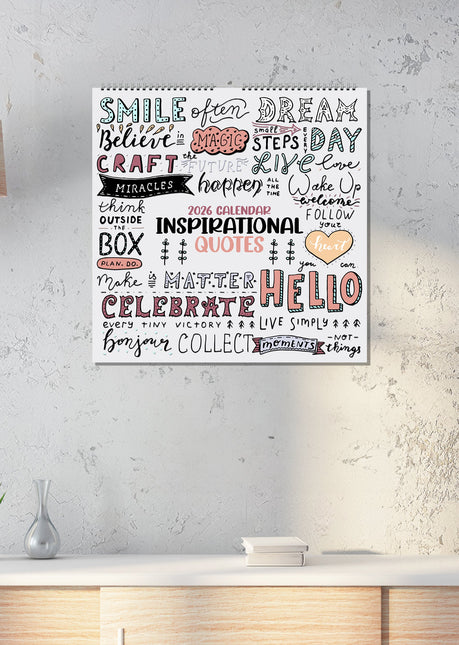 SMILE often DREAM
Believe in MAGIC small STEPS EVERY DAY
CRAFT the FUTURE LIVE love
MIRACLES happen ALL THE TIME Wake Up
think welcome
OUTSIDE FOLLOW
THE your
BOX heart
2026 CALENDAR
INSPIRATIONAL
QUOTES
PLAN. DO. you can
Make it MATTER HELLO
CELEBRATE
every TINY VICTORY LIVE SIMPLY
bonjour COLLECT moments -NOT- things